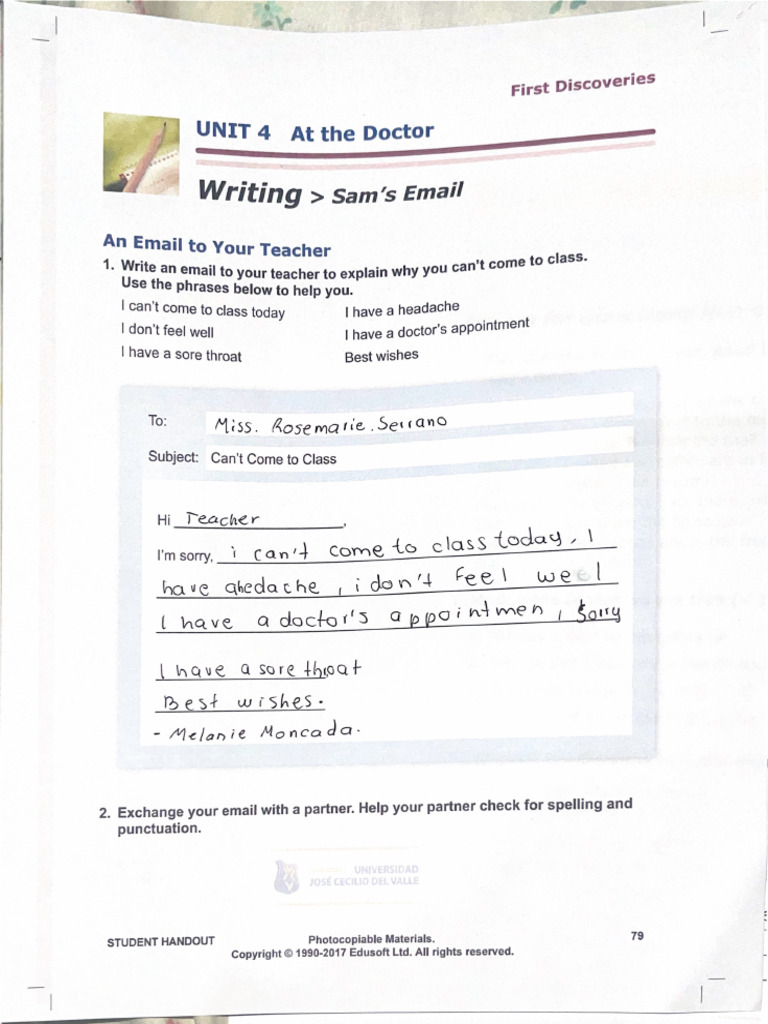 First Discoveries
UNIT 4 At the Doctor
Writing > Sam's Email
An Email to Your Teacher
1. Write an email to your teacher to explain why you can't come to class.
Use the phrases below to help you.
I can't come to class today
I don't feel well
I have a sore throat
I have a headache
I have a doctor's appointment
Best wishes
To: Miss. Rosemarie. Serrano
Subject: Can't Come to Class
Hi Teacher,
I'm sorry, i can't come to class today, I
have ahedache, i don't feel weel
I have a doctor's appointmen, Sorry
I have a sore throat
Best wishes.
- Melanie Moncada.
2. Exchange your email with a partner. Help your partner check for spelling and
punctuation.
UNIVERSIDAD
JOSÉ CECILIO DEL VALLE
STUDENT HANDOUT
Photocopiable Materials.
Copyright © 1990-2017 Edusoft Ltd. All rights reserved.
79